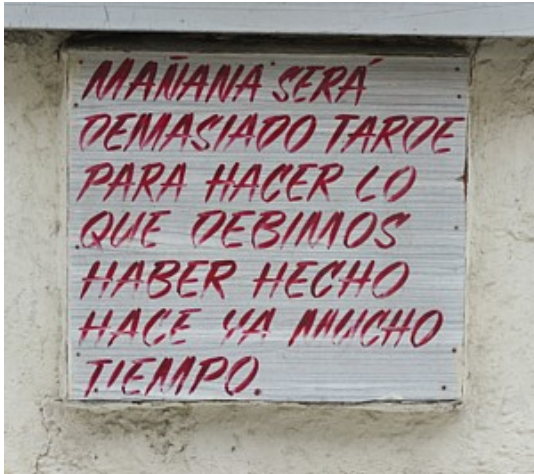 MAÑANA SERÁ
DEMASIADO TARDE
PARA HACER LO
QUE DEBIMOS
HABER HECHO
HACE YA MUCHO
TIEMPO.